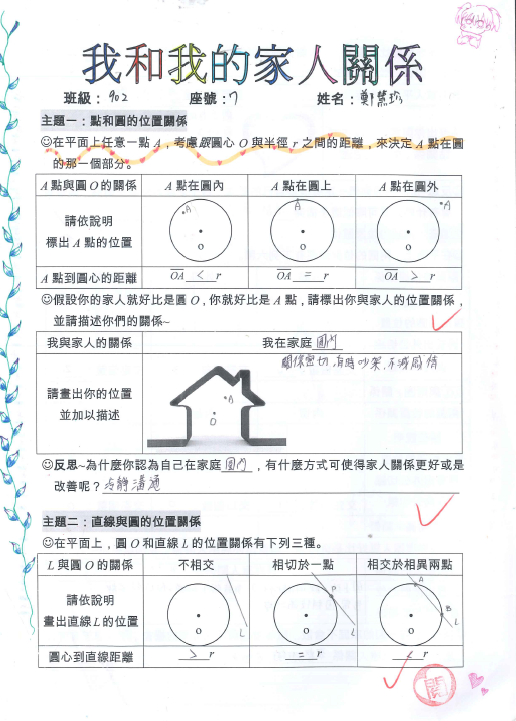 我和我的家人關係
班級：902 座號：7 姓名：鄭慧
主題一：點和圓的位置關係
☺在平面上任意一點 A，考慮跟圓心 O 與半徑 r 之間的距離，來決定 A 點在圓
的那一個部分。
A 點與圓 O 的關係 A 點在圓內 A 點在圓上 A 點在圓外
請依說明
標出 A 點的位置
A A A
O O O
A 點到圓心的距離 OA < r OA = r OA > r
☺假設你的家人就好比是圓 O，你就好比是 A 點，請標出你與家人的位置關係，
並請描述你們的關係~
我與家人的關係 我在家庭圓內
關係密切,有時吵架,不減感情
請畫出你的位置
並加以描述
A
O
☺反思~為什麼你認為自己在家庭圓內，有什麼方式可使得家人關係更好或是
改善呢？冷靜溝通
主題二：直線與圓的位置關係
☺在平面上，圓 O 和直線 L 的位置關係有下列三種。
L 與圓 O 的關係 不相交 相切於一點 相交於相異兩點
請依說明
畫出直線 L 的位置
P A B
O L O L O L
圓心到直線距離 > r = r < r